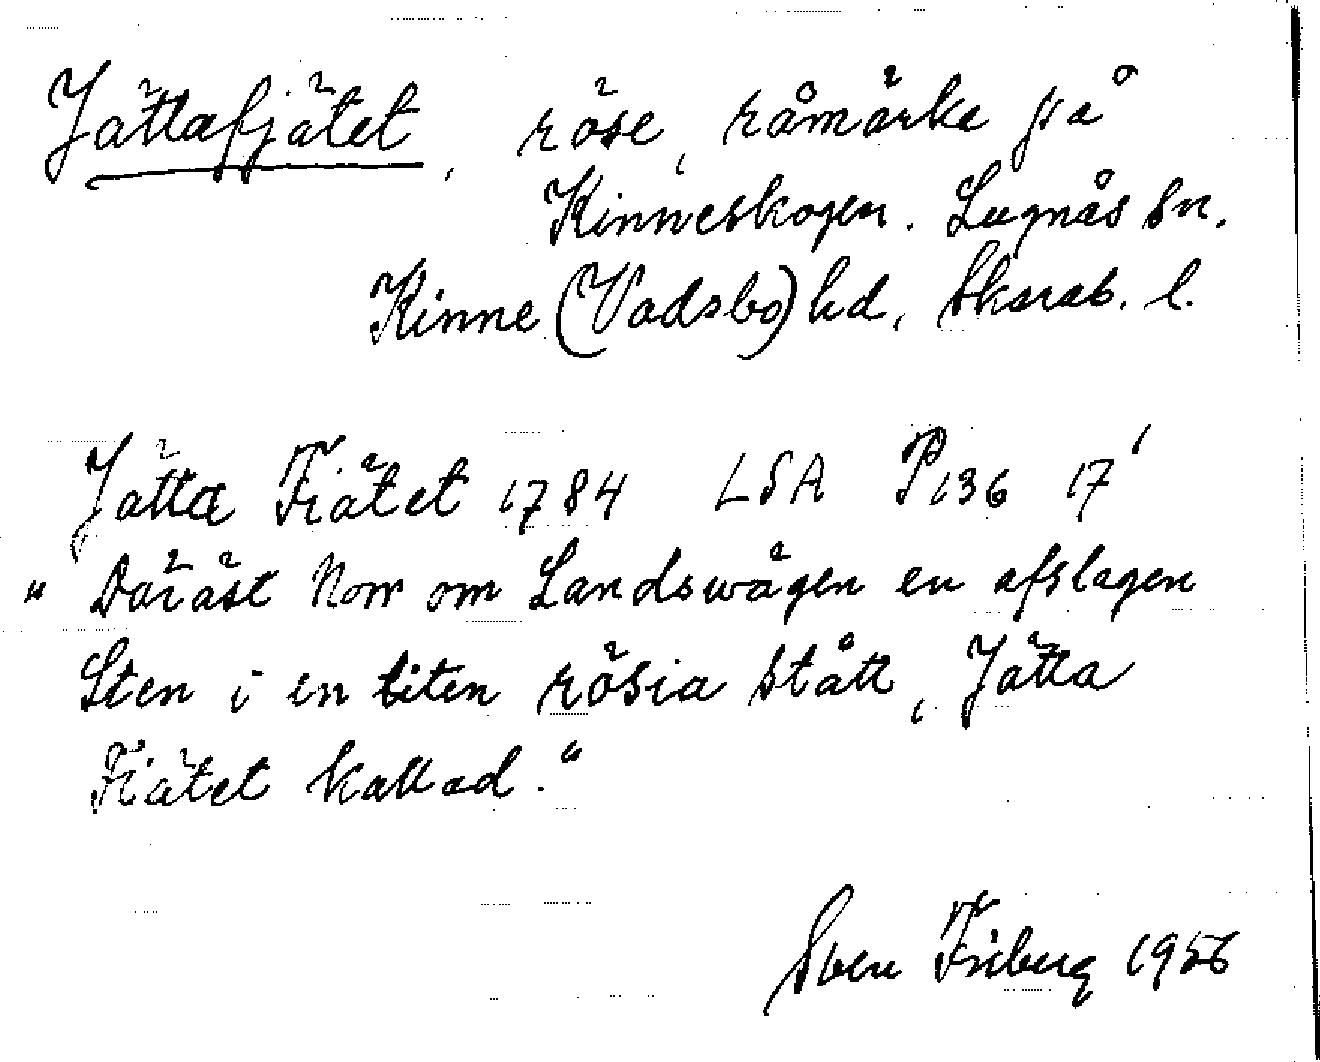 Jättafjätet, röse, råmärke på
Kinneskogen. Lugnås sn.
Kinne (Vadsbo) hd, Skarab. l.
Jätta Fiätet 1784 LSA P136 17'
" Däräst Norr om Landswägen en afslagen
Sten i en liten rösia stått, Jätta
Fiätet kallad."
Sven Friberg 1956